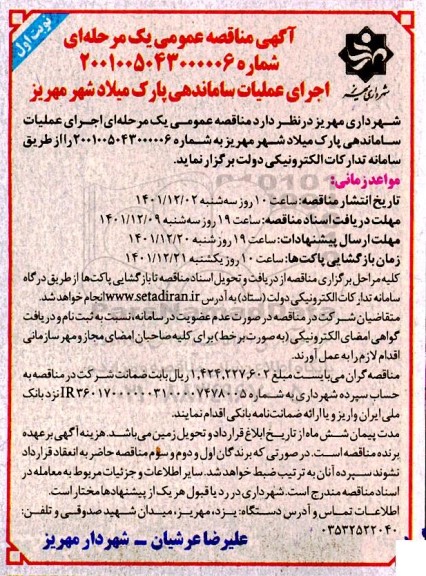 نوبت اول
آگهی مناقصه عمومی یک مرحله‌ای
شماره ۲۰۰۱۰۰۵۰۴۳۰۰۰۰۰۶
اجرای عملیات ساماندهی پارک میلاد شهر مهریز
شهرداری مهریز
شهرداری مهریز در نظر دارد مناقصه عمومی یک مرحله‌ای اجرای عملیات
ساماندهی پارک میلاد شهر مهریز به شماره ۲۰۰۱۰۰۵۰۴۳۰۰۰۰۰۶ را از طریق
سامانه تدارکات الکترونیکی دولت برگزار نماید.
مواعد زمانی:
تاریخ انتشار مناقصه: ساعت ۱۰ روز سه‌شنبه ۱۴۰۱/۱۲/۰۲
مهلت دریافت اسناد مناقصه: ساعت ۱۹ روز سه‌شنبه ۱۴۰۱/۱۲/۰۹
مهلت ارسال پیشنهادات: ساعت ۱۹ روز شنبه ۱۴۰۱/۱۲/۲۰
زمان بازگشایی پاکت‌ها: ساعت ۱۰ روز یکشنبه ۱۴۰۱/۱۲/۲۱
کلیه مراحل برگزاری مناقصه از دریافت و تحویل اسناد مناقصه تا بازگشایی پاکت‌ها از طریق درگاه
سامانه تدارکات الکترونیکی دولت (ستاد) به آدرس www.setadiran.ir انجام خواهد شد.
متقاضیان شرکت در مناقصه در صورت عدم عضویت در سامانه، نسبت به ثبت نام و دریافت
گواهی امضای الکترونیکی (به صورت بر خط) برای کلیه صاحبان امضای مجاز و مهر سازمانی
اقدام لازم را به عمل آورند.
مناقصه گران می‌بایست مبلغ ۱,۴۲۴,۲۲۷,۶۰۲ ریال بابت ضمانت شرکت در مناقصه به
حساب سپرده شهرداری به شماره IR۳۶۰۱۷۰۰۰۰۰۰۳۱۰۰۰۰۷۴۷۸۰۰۵ نزد بانک
ملی ایران واریز و یا ارائه ضمانت‌نامه بانکی اقدام نمایند.
مدت پیمان شش ماه از تاریخ ابلاغ قرارداد و تحویل زمین می‌باشد. هزینه آگهی بر عهده
برنده مناقصه است. در صورتی که برندگان اول و دوم و سوم مناقصه حاضر به انعقاد قرارداد
نشوند سپرده آنان به ترتیب ضبط خواهد شد. سایر اطلاعات و جزئیات مربوط به معامله در
اسناد مناقصه مندرج است. شهرداری در رد یا قبول هر یک از پیشنهادها مختار است.
اطلاعات تماس و آدرس دستگاه: یزد، مهریز، میدان شهید صدوقی و تلفن:
۰۳۵۳۲۵۲۲۰۴۰
علیرضا عرشیان - شهردار مهریز